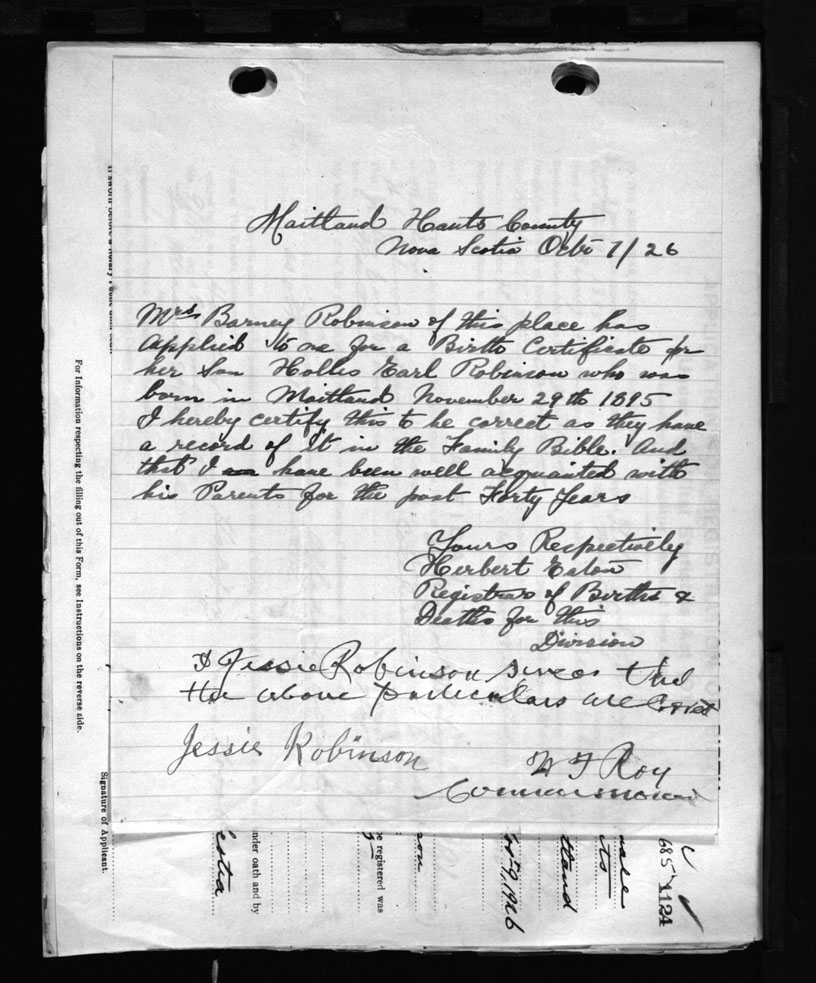 Maitland Hants County
Nova Scotia Octbr 7/26
Mrs Barney Robinson of this place has
applied to me for a Birth Certificate for
her Son Hollis Earl Robinson who was
born in Maitland November 29th 1895
I hereby certify this to be correct as they have
a record of it in the Family Bible. And
that I am have been well acquainted with
his Parents for the past Forty Years
Yours Respectively
Herbert Eaton
Registrar of Births &
Deaths for this
Division
I Jessie Robinson swear that
the above particulars are Correct
Jessie Robinson
W F Roy
Commissioner
For Information respecting the filling out of this Form, see Instructions on the reverse side.
Signature of Applicant.
cotia
nder oath and by
be registered was
son
9, 1926
tland
nts
685
1124